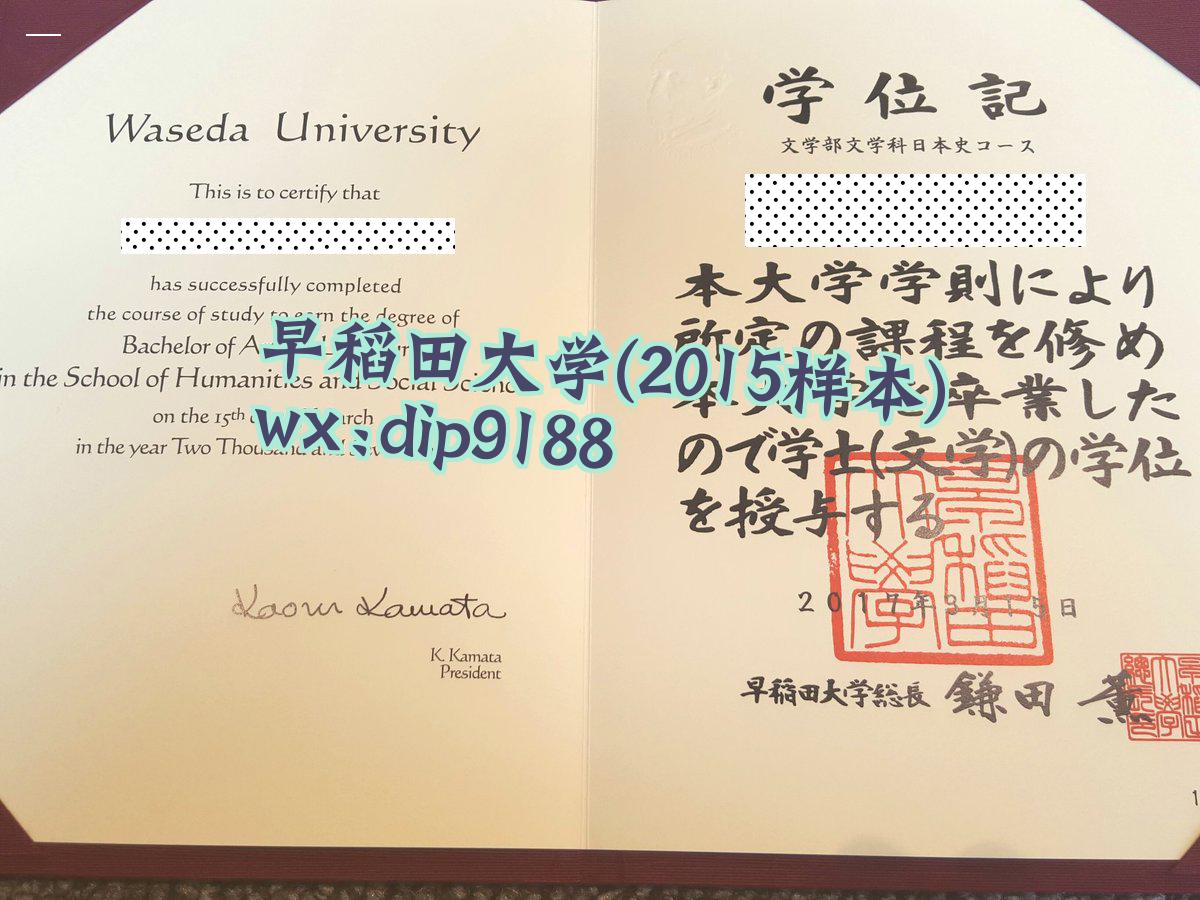 Waseda University
This is to certify that
has successfully completed
the course of study to earn the degree of
Bachelor of
in the School of Humanities and Social Scienc
on the 15th
in the year Two Thousand and
Kaoru Kamata
K. Kamata
President
学位記
文学部文学科日本史コース
本大学学則により
所定の課程を修め
卒業した
ので学士(文学)の学位
を授与する
2017年3月15日
早稲田大学総長 鎌田 薫
早稲田大学(2015样本)
wx:dip9188
早稲田大學
1